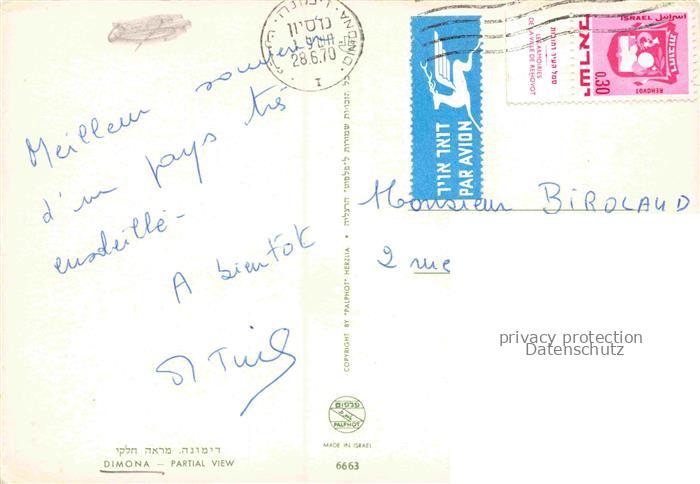 דימונה DIMONA
28.6.70
1
ISRAEL ישראל
0.30
REHOVOT
סמל העיר רחובות
LES ARMOIRIES
DE LA VILLE DE REHOVOT
דואר אויר
PAR AVION
Meilleur souvenir
d'un pays très
ensoleillé -
A bientôt
Monsieur BIROLAUD
2 rue
privacy protection
Datenschutz
כל הזכויות שמורות ל"פלפוט" הרצליה • COPYRIGHT BY "PALPHOT" HERZLIA
פלפוט
PALPHOT
MADE IN ISRAEL
6663
דימונה. מראה חלקי
DIMONA — PARTIAL VIEW